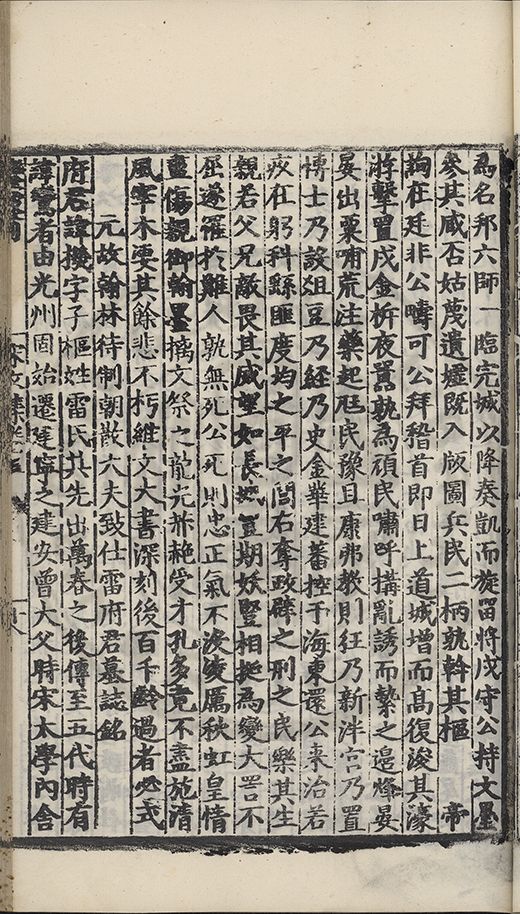 爲名邦六師一臨完城以降奏凱而旋留將戍守公持文墨
參其咸否姑蔑遺墟既入版圖兵民二柄孰幹其樞　帝
詢在廷非公疇可公拜稽首即日上道城增而高復浚其濠
游擊置戍金柝夜嚣孰爲頑民嘯呼搆亂誘而縶之邊燧晏
晏出粟哺荒注藥起尫民豫且康弗教則狂乃新泮宫乃置
博士乃設俎豆乃經乃史金華建蕃控于海東還公来治若
疾在躬科繇匪度均之平之閭右奪政辟之刑之民樂其生
親若父兄敵畏其威望如長城豈期妖豎相挻爲變大詈不
屈遂罹於難人孰無死公死則忠正氣不泯夐厲秋虹皇情
盡傷親御翰墨摛文祭之龍光赫赩受才孔多竟不盡施清
風宰木耍其餘悲不朽維文大書深刻後百千齡過者必式
元故翰林待制朝散大夫致仕雷府君墓誌銘
府君諱機字子樞姓雷氏其先出萬春之後傳至五代時有
諱鸞者由光州固始遷建寧之建安曾大父時宋太學內舍
宋文集卷